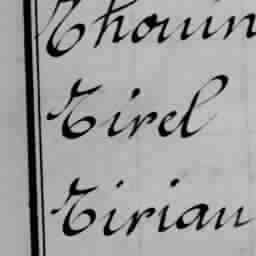 Thouin
Tirel
Tirian